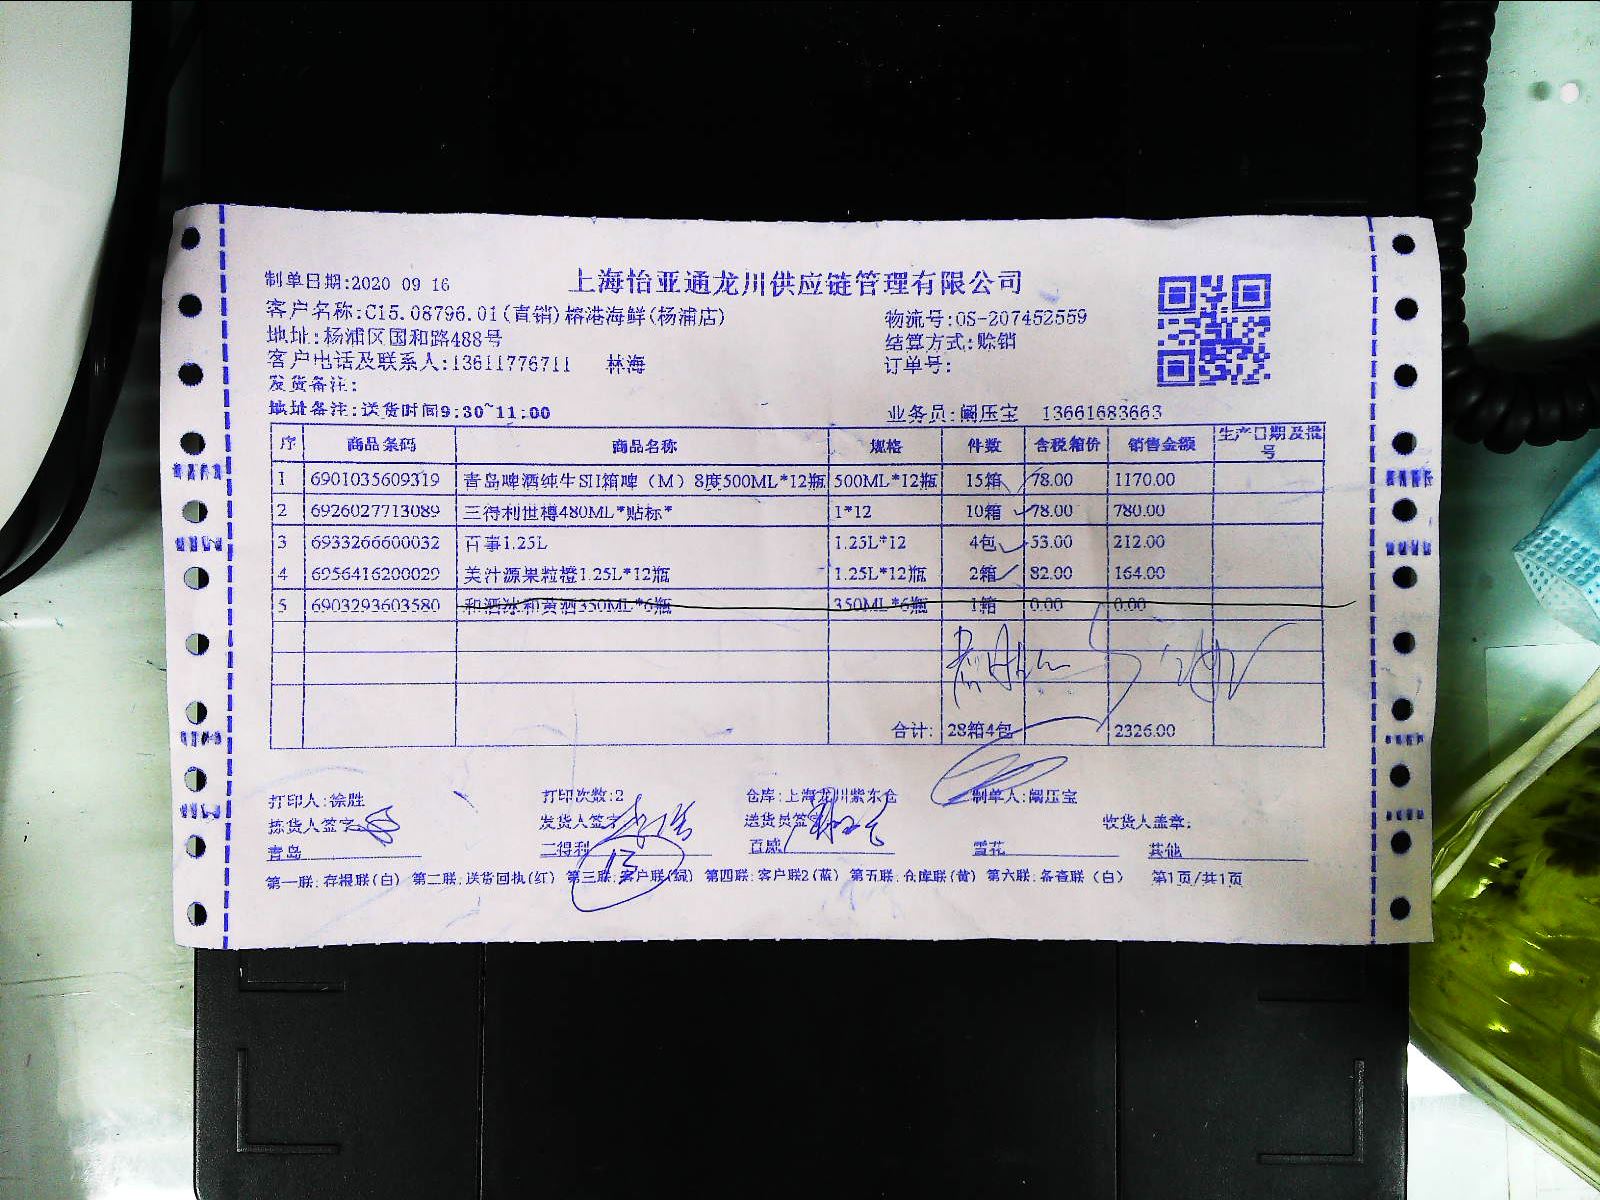 上海怡亚通龙川供应链管理有限公司
制单日期:2020 09 16
客户名称:C15.08796.01(直销)榕港海鲜(杨浦店) 物流号:OS-207452559
地址:杨浦区国和路488号 结算方式:赊销
客户电话及联系人:13611776711 林海 订单号:
发货备注:
地址备注:送货时间9:30~11:00 业务员:阚压宝 13661683663
序 商品条码 商品名称 规格 件数 含税箱价 销售金额 生产日期及批号
1 6901035609319 青岛啤酒纯生SII箱啤（M）8度500ML*12瓶 500ML*12瓶 15箱 78.00 1170.00
2 6926027713089 三得利世樽480ML*贴标* 1*12 10箱 78.00 780.00
3 6933266600032 百事1.25L 1.25L*12 4包 53.00 212.00
4 6956416200029 美汁源果粒橙1.25L*12瓶 1.25L*12瓶 2箱 82.00 164.00
5 6903293603580 和酒冰和黄酒350ML*6瓶 350ML*6瓶 1箱 0.00 0.00
合计: 28箱4包 2326.00
打印人:徐胜 打印次数:2 仓库:上海龙川紫东仓 制单人:阚压宝
拣货人签字: 发货人签字: 送货员签字: 收货人盖章:
青岛 三得利 百威 雪花 其他
13
第一联:存根联(白) 第二联:送货回执(红) 第三联:客户联(绿) 第四联:客户联2(蓝) 第五联:仓库联(黄) 第六联:备查联(白) 第1页/共1页